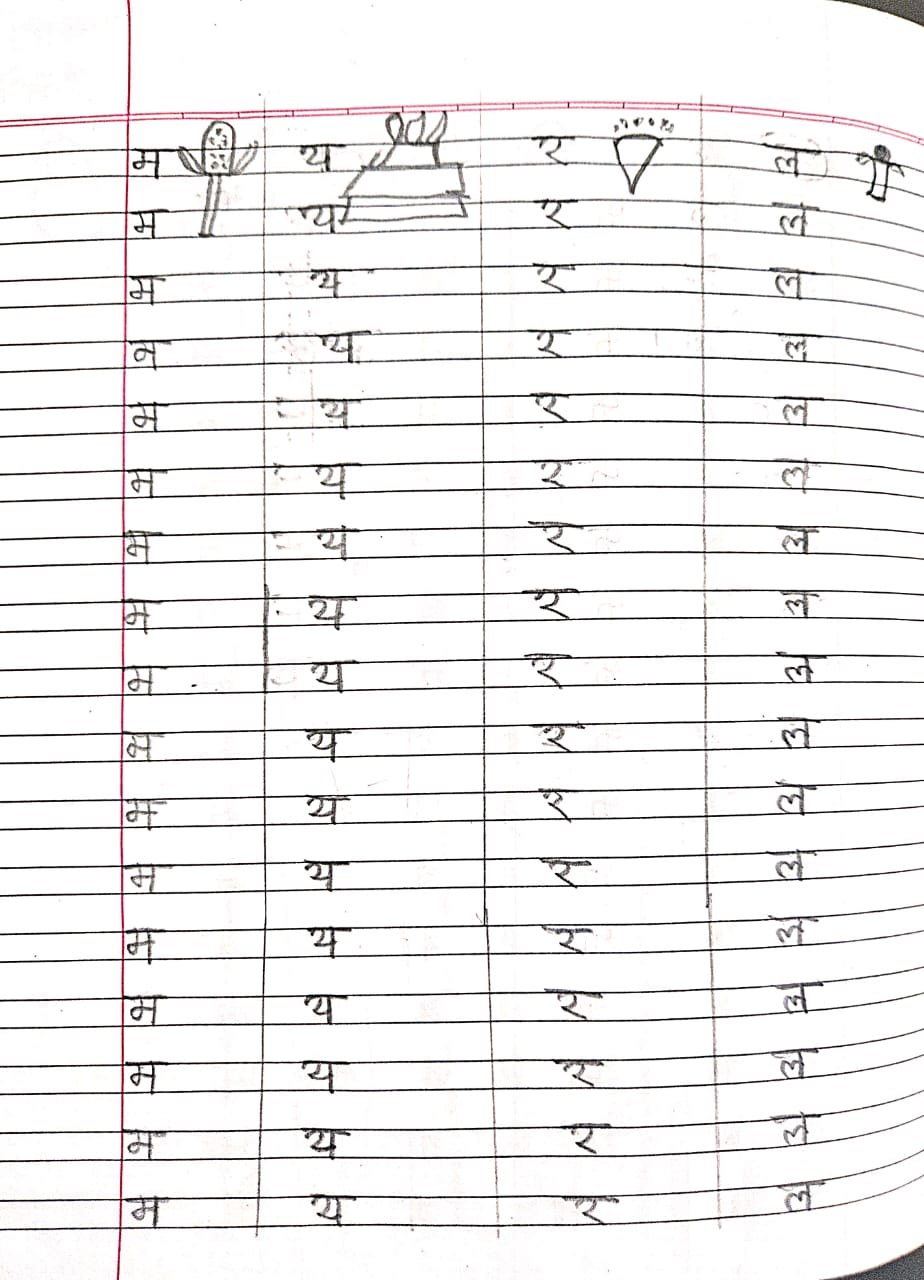 म य र ल
म य र ल
म य र ल
म य र ल
म य र ल
म य र ल
म य र ल
म य र ल
म य र ल
म य र ल
म य र ल
म य र ल
म य र ल
म य र ल
म य र ल
म य र ल
म य र ल